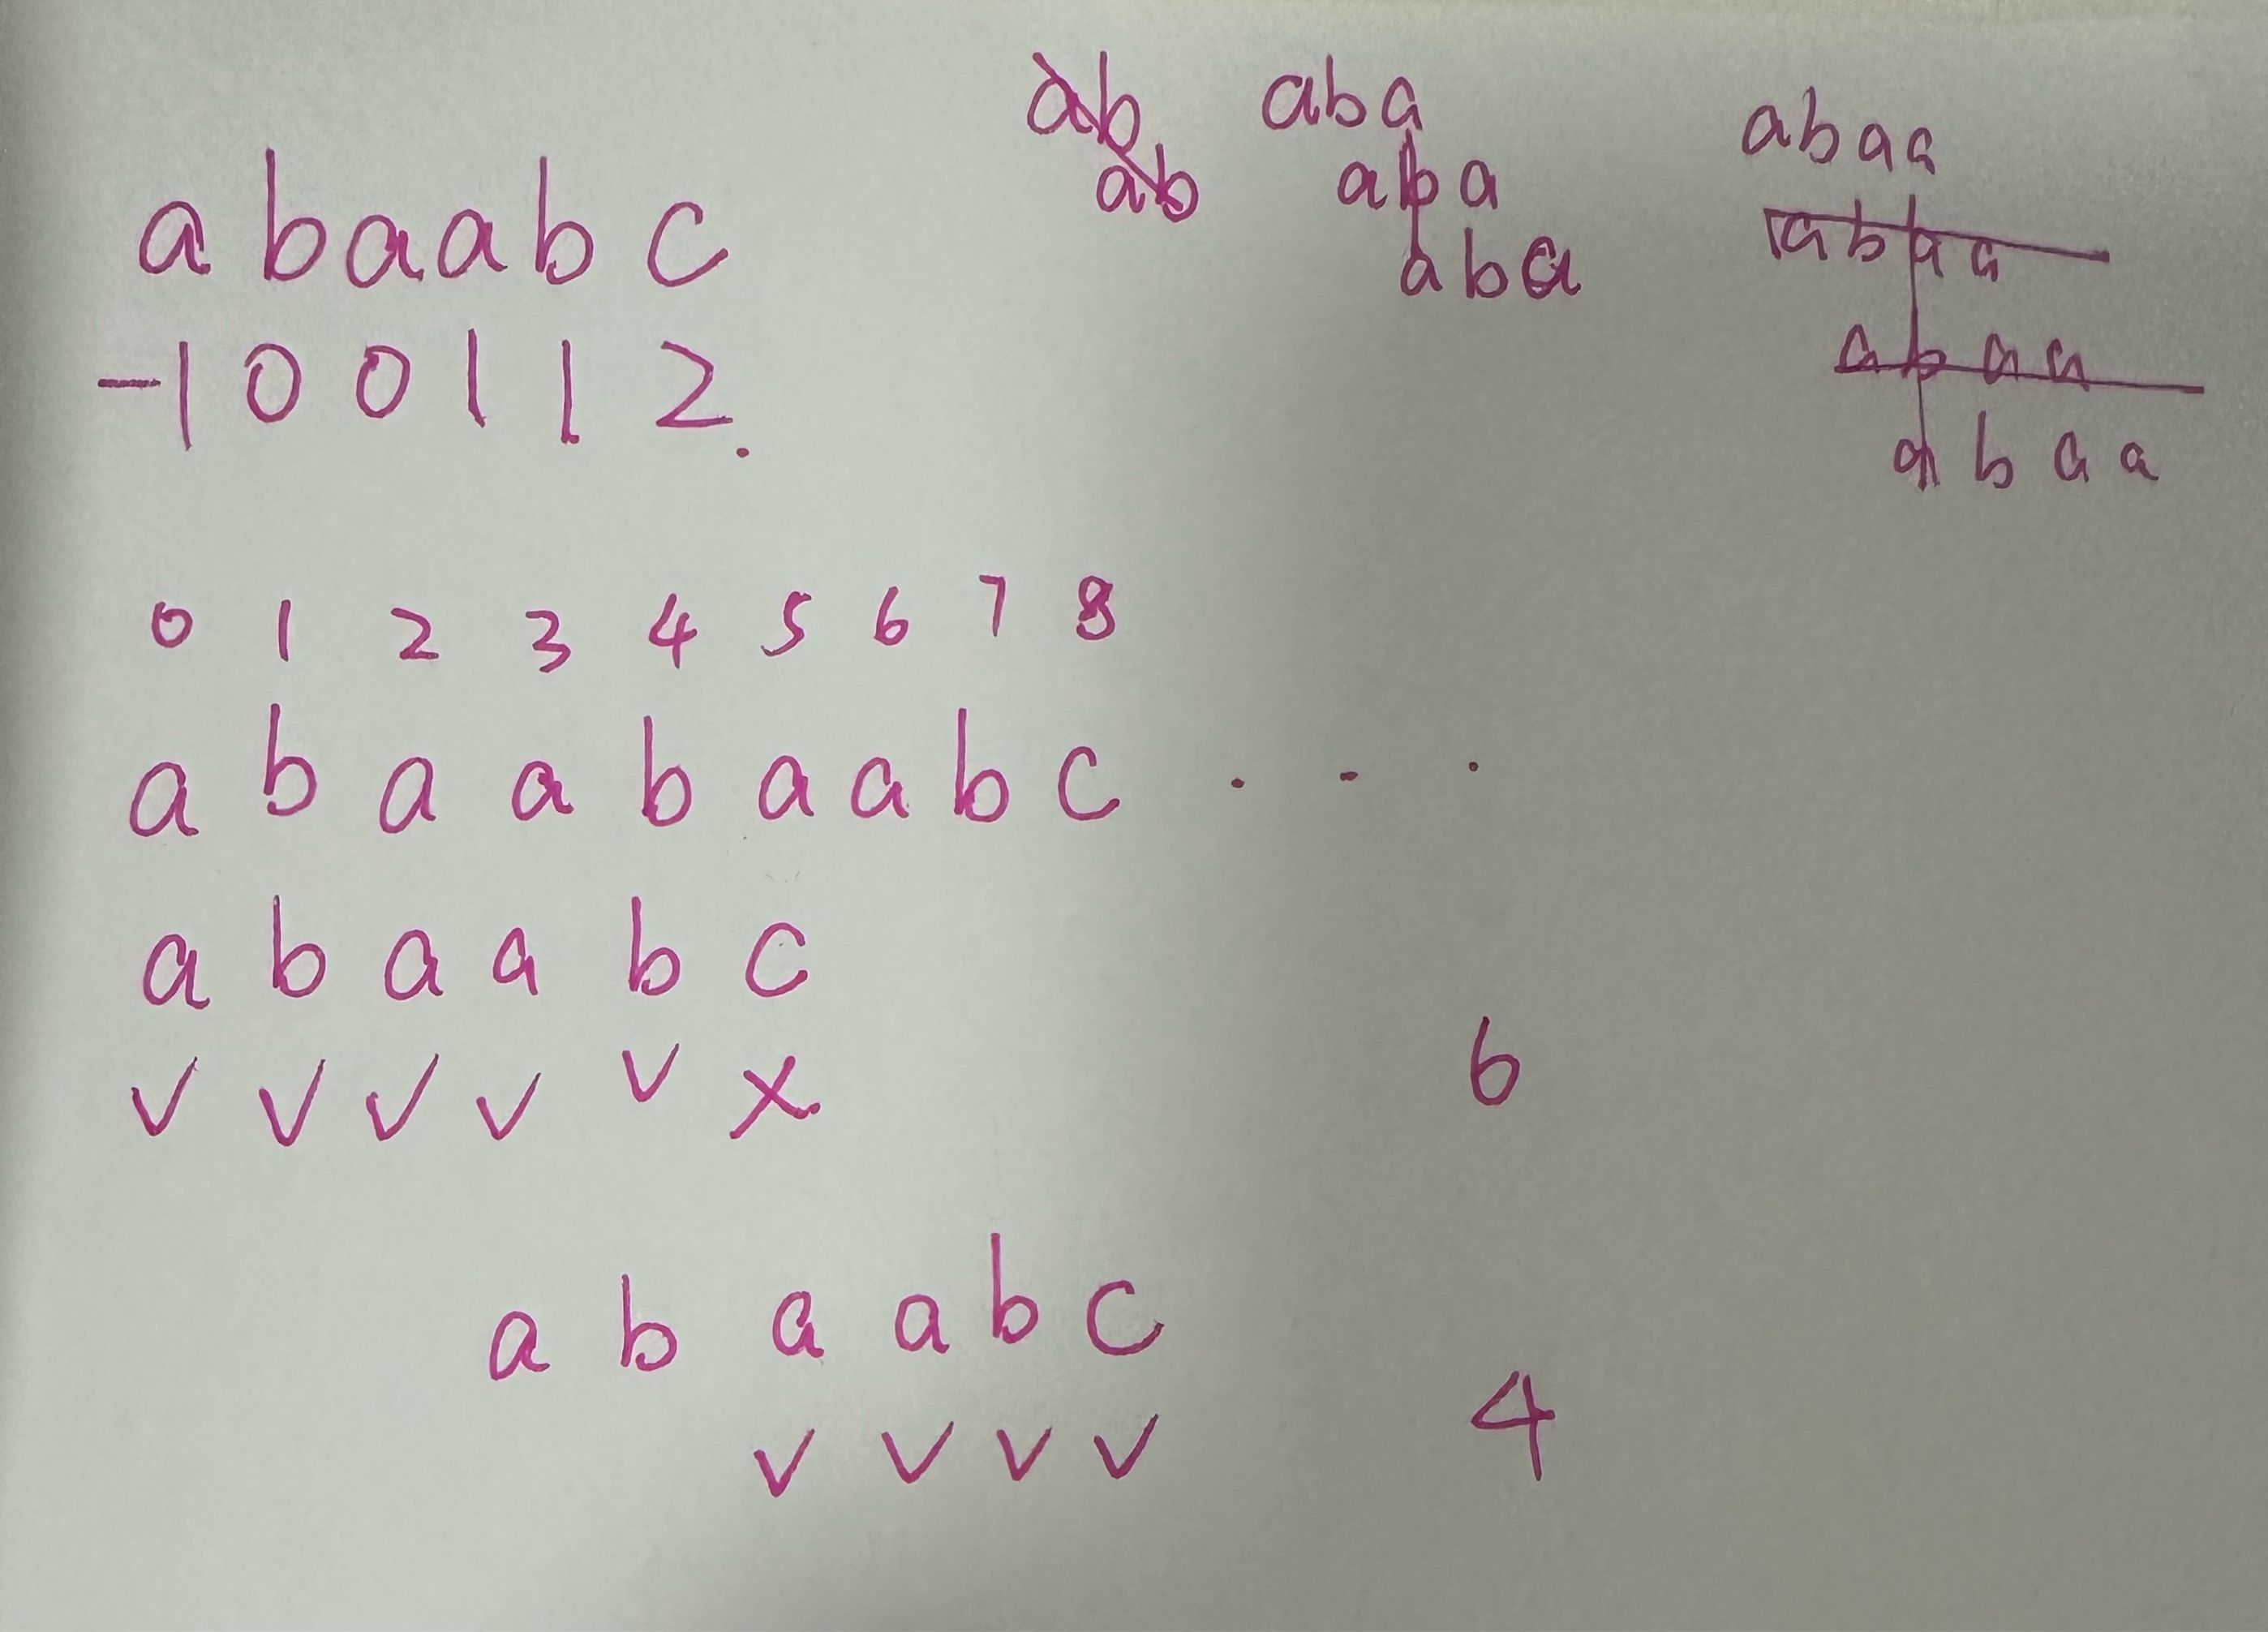 ab aba abaa
ab aba abaa
abaabc aba abaa
-100112. abaa
0 1 2 3 4 5 6 7 8
a b a a b a a b c . . .
a b a a b c
✓ ✓ ✓ ✓ ✓ ✗ 6
a b a a b c
✓ ✓ ✓ ✓ 4